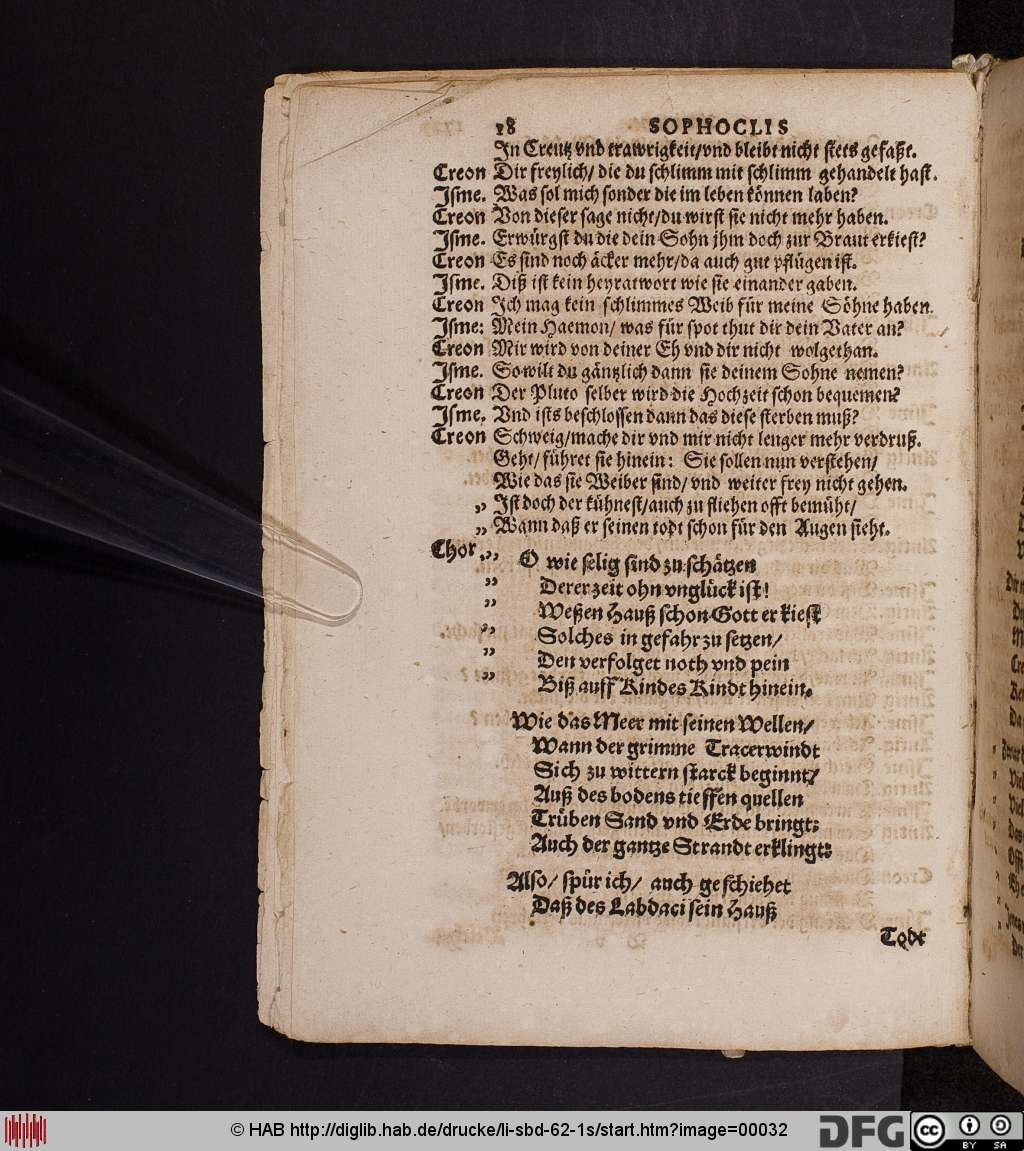 18 SOPHOCLIS
In Creutz vnd trawrigkeit/vnd bleibt nicht stets gefaßt.
Creon Dir freylich/ die du schlimm mit schlimm gehandelt hast.
Jsme. Was sol mich sonder die im leben können laben?
Creon Von dieser sage nicht/du wirst sie nicht mehr haben.
Jsme. Erwürgst du die dein Sohn jhm doch zur Braut erkiest?
Creon Es sind noch äcker mehr/da auch gut pflügen ist.
Jsme. Diß ist kein heyratwort wie sie einander gaben.
Creon Ich mag kein schlimmes Weib für meine Söhne haben.
Jsme: Mein Haemon/ was für spot thut dir dein Vater an?
Creon Mir wird von deiner Eh vnd dir nicht wolgethan.
Jsme. So wilt du gäntzlich dann sie deinem Sohne nemen?
Creon Der Pluto selber wird die Hochzeit schon bequemen?
Jsme. Vnd ists beschlossen dann das diese sterben muß?
Creon Schweig/mache dir vnd mir nicht lenger mehr verdruß.
Geht/ führet sie hinein: Sie sollen nun verstehen/
Wie das sie Weiber sind/ vnd weiter frey nicht gehen.
„ Ist doch der kühnest/auch zu fliehen offt bemüht/
„ Wann daß er seinen todt schon für den Augen sieht.
Chor „ O wie selig sind zu schätzen
„ Derer zeit ohn vnglück ist!
„ Weßen Hauß schon Gott erkiest
„ Solches in gefahr zu setzen/
„ Den verfolget noth vnd pein
„ Biß auff Kindes Kindt hinein.
Wie das Meer mit seinen Wellen/
Wann der grimme Tracerwindt
Sich zu wittern starck beginnt/
Auß des bodens tieffen quellen
Trüben Sand vnd Erde bringt:
Auch der gantze Strandt erklingt:
Also/ spür ich/ auch geschiehet
Daß des Labdaci sein Hauß
Todt
© HAB http://diglib.hab.de/drucke/li-sbd-62-1s/start.htm?image=00032
DFG
cc BY SA